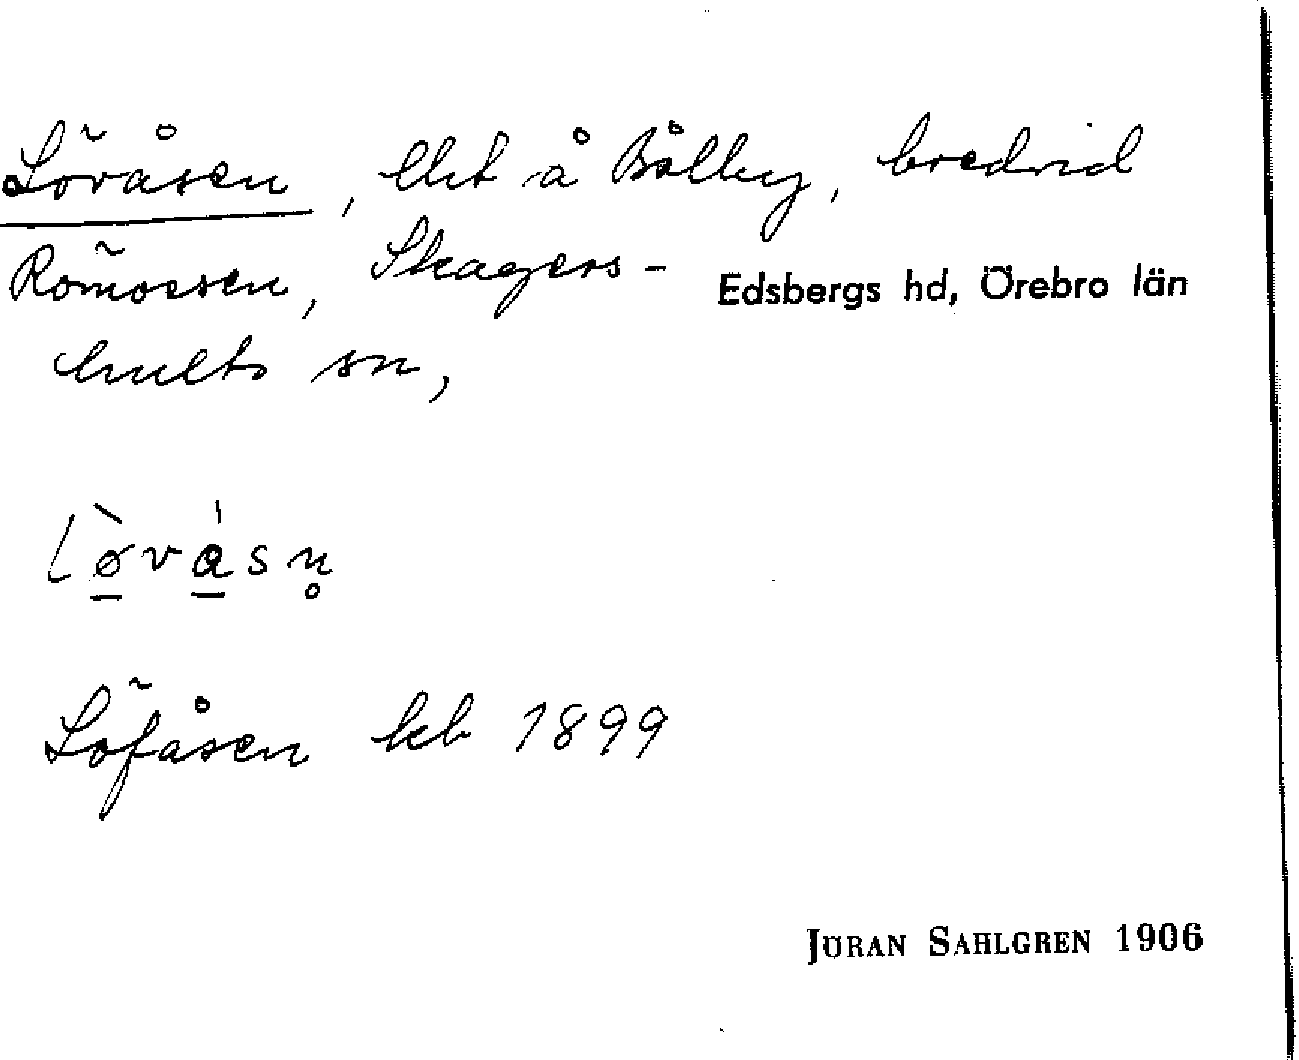 Lövåsen, lht å Bålby, bredvid
Römossen, Skagers-
Edsbergs hd, Örebro län
hults sn,
lø̀vásn̥
Löfåsen kb 1899
JÖRAN SAHLGREN 1906